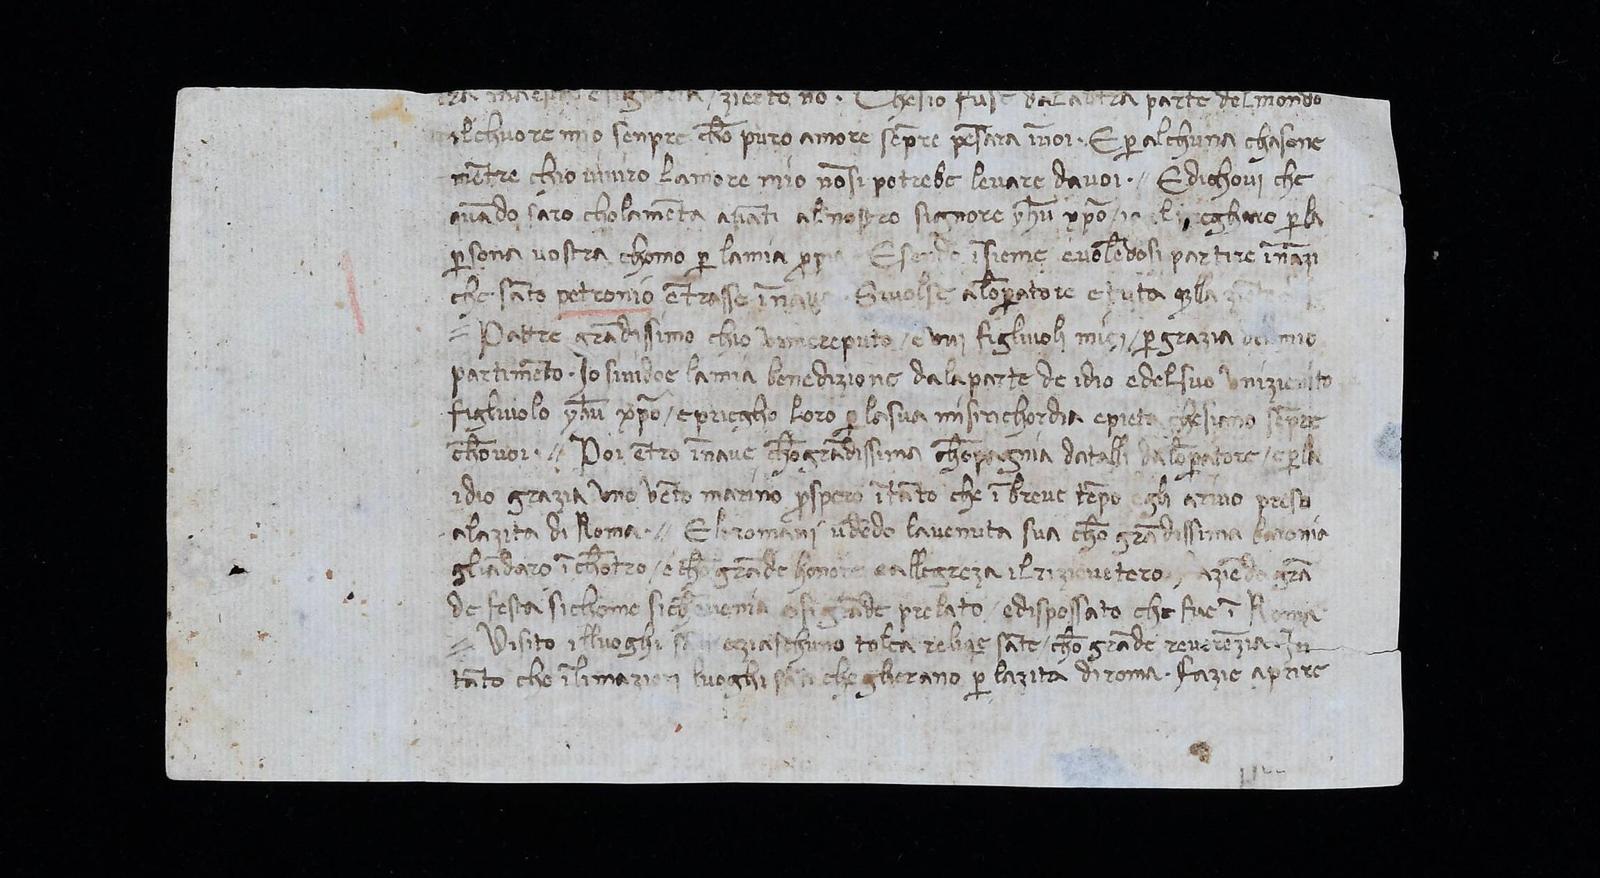 zierto no · Chesio fuse dalaltra parte del mondo
ilchuore mio senpre chō puro amore senp̄re pēsara ī voi · E p̄ alchuna chasone
mētre chio viviro lamore mio nōsi potrebe levare davoi · // E dichovi che
quādo saro cholamēta avāti al nostro signore yħu xp̄o p̄ la
p̄sona vostra chomo p̄ lamia īsieme evolēdosi partire ināzi
che sāto petronio ētrasse ī nave · Sivolse alōp̄atore e tuta
= Patre grādissimo chio reputo / e vui figluioli miei / p̄ grazia del mio
partimēto · Io sividoe lamia benedizione dalaparte de idio edelsuo
figluiolo yħu xp̄o / epriegho loro p̄ lasua misirichordia epieta chesiano senp̄re
chōvoi · // Poi ētro ī nave chōgrādissima chōpagnia datalli dalōp̄atore / e p̄ la
idio grazia uno vēto marino p̄spero ītāto che ī breve tēpo egli arivo preso
alazita di Roma · // E li romani udēdo lavenuta sua chō grādissima baronia
gliādaro ī chōtro / e chō grāde honore eallegreza ilrizievetero grā
de festa sichome grāde prelato / edispossato che fue ī Roma
= Visito illuoghi santi eziaschuno sāte / chō grāde reverēzia · In
tāto che luoghi cheglierano p̄ lazita diroma · fazie aprire